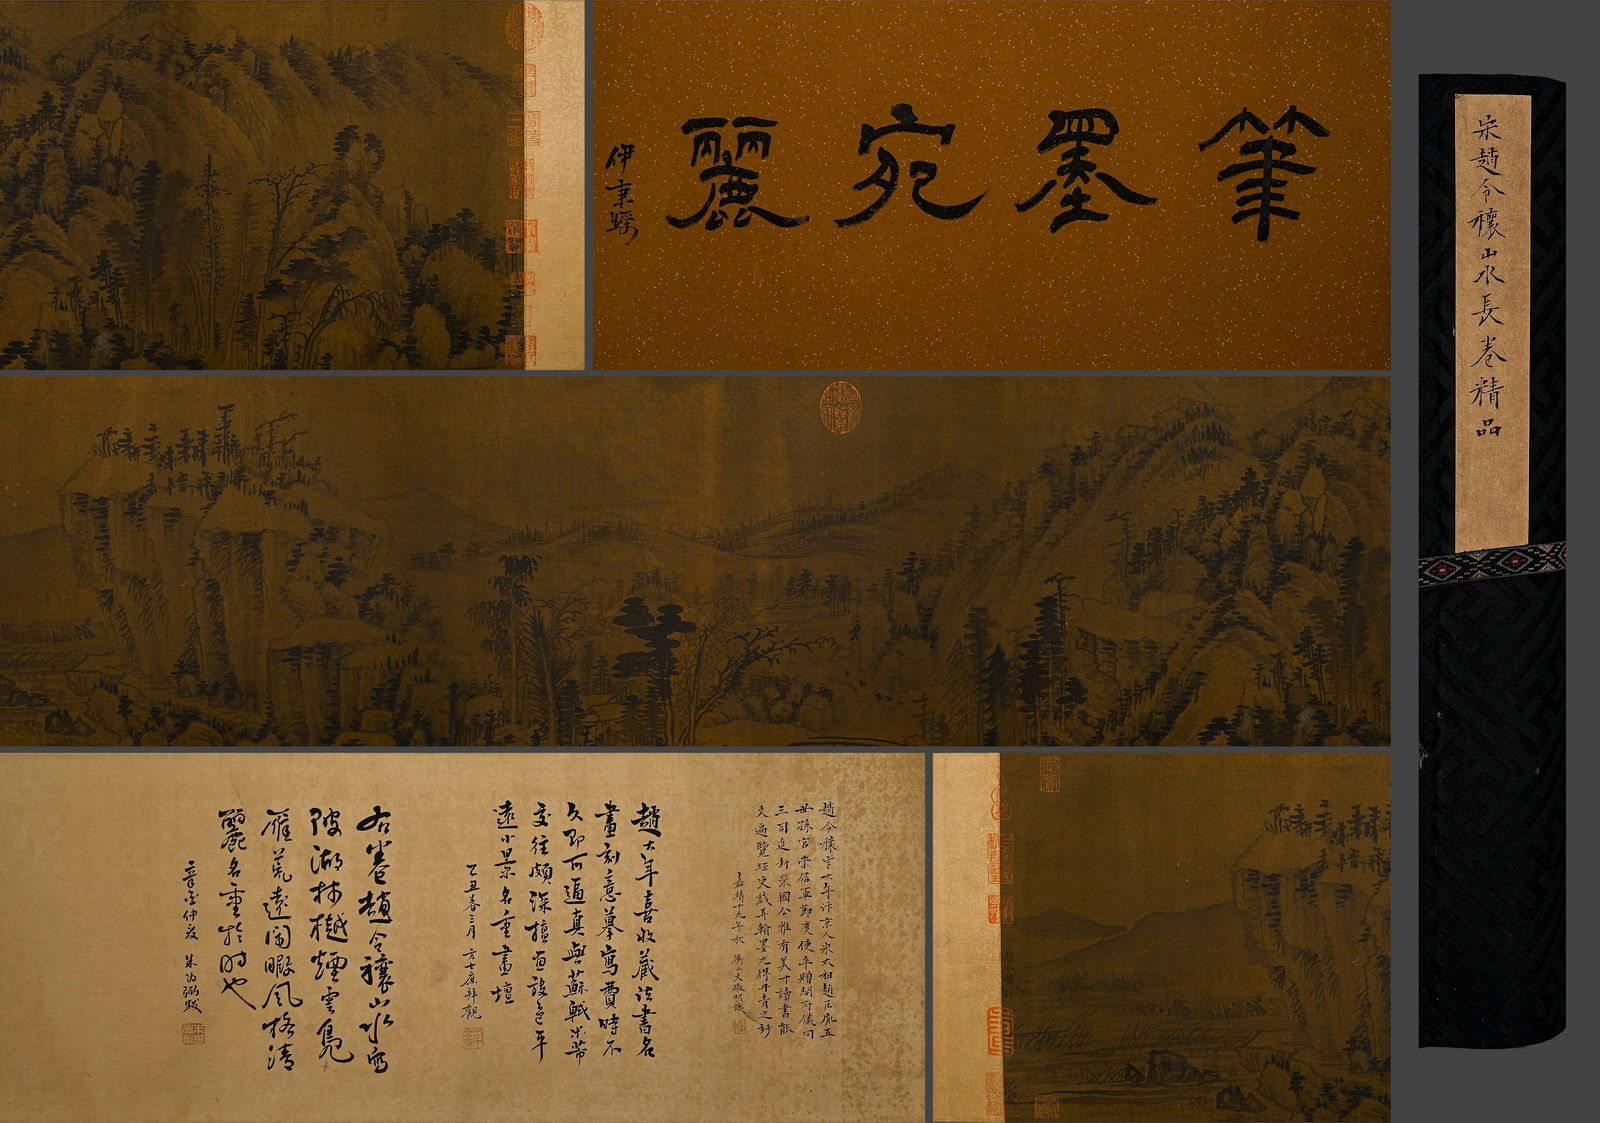 筆墨宛麗
伊秉綬
宋趙令穰山水長卷精品
趙令穰字大年汴京人宋太祖趙匡胤五
世孫官崇信軍節度使卒贈開府儀同
三司追封榮國公雅有美才讀書能
文遍覽經史戲弄翰墨尤得丹青之妙
嘉靖十九年秋 衡山文徵明識
趙大年喜收藏法書名
畫刻意摹寫費時不
久即可逼真與蘇軾米芾
交往頗深擅畫設色平
遠小景名重畫壇
乙丑春三月 方士庶拜觀
右卷趙令穰山水寫
陂湖林樾煙雲鳧
雁荒遠閒暇風格清
麗名重於時也
辛酉仲夏 朱為弼跋